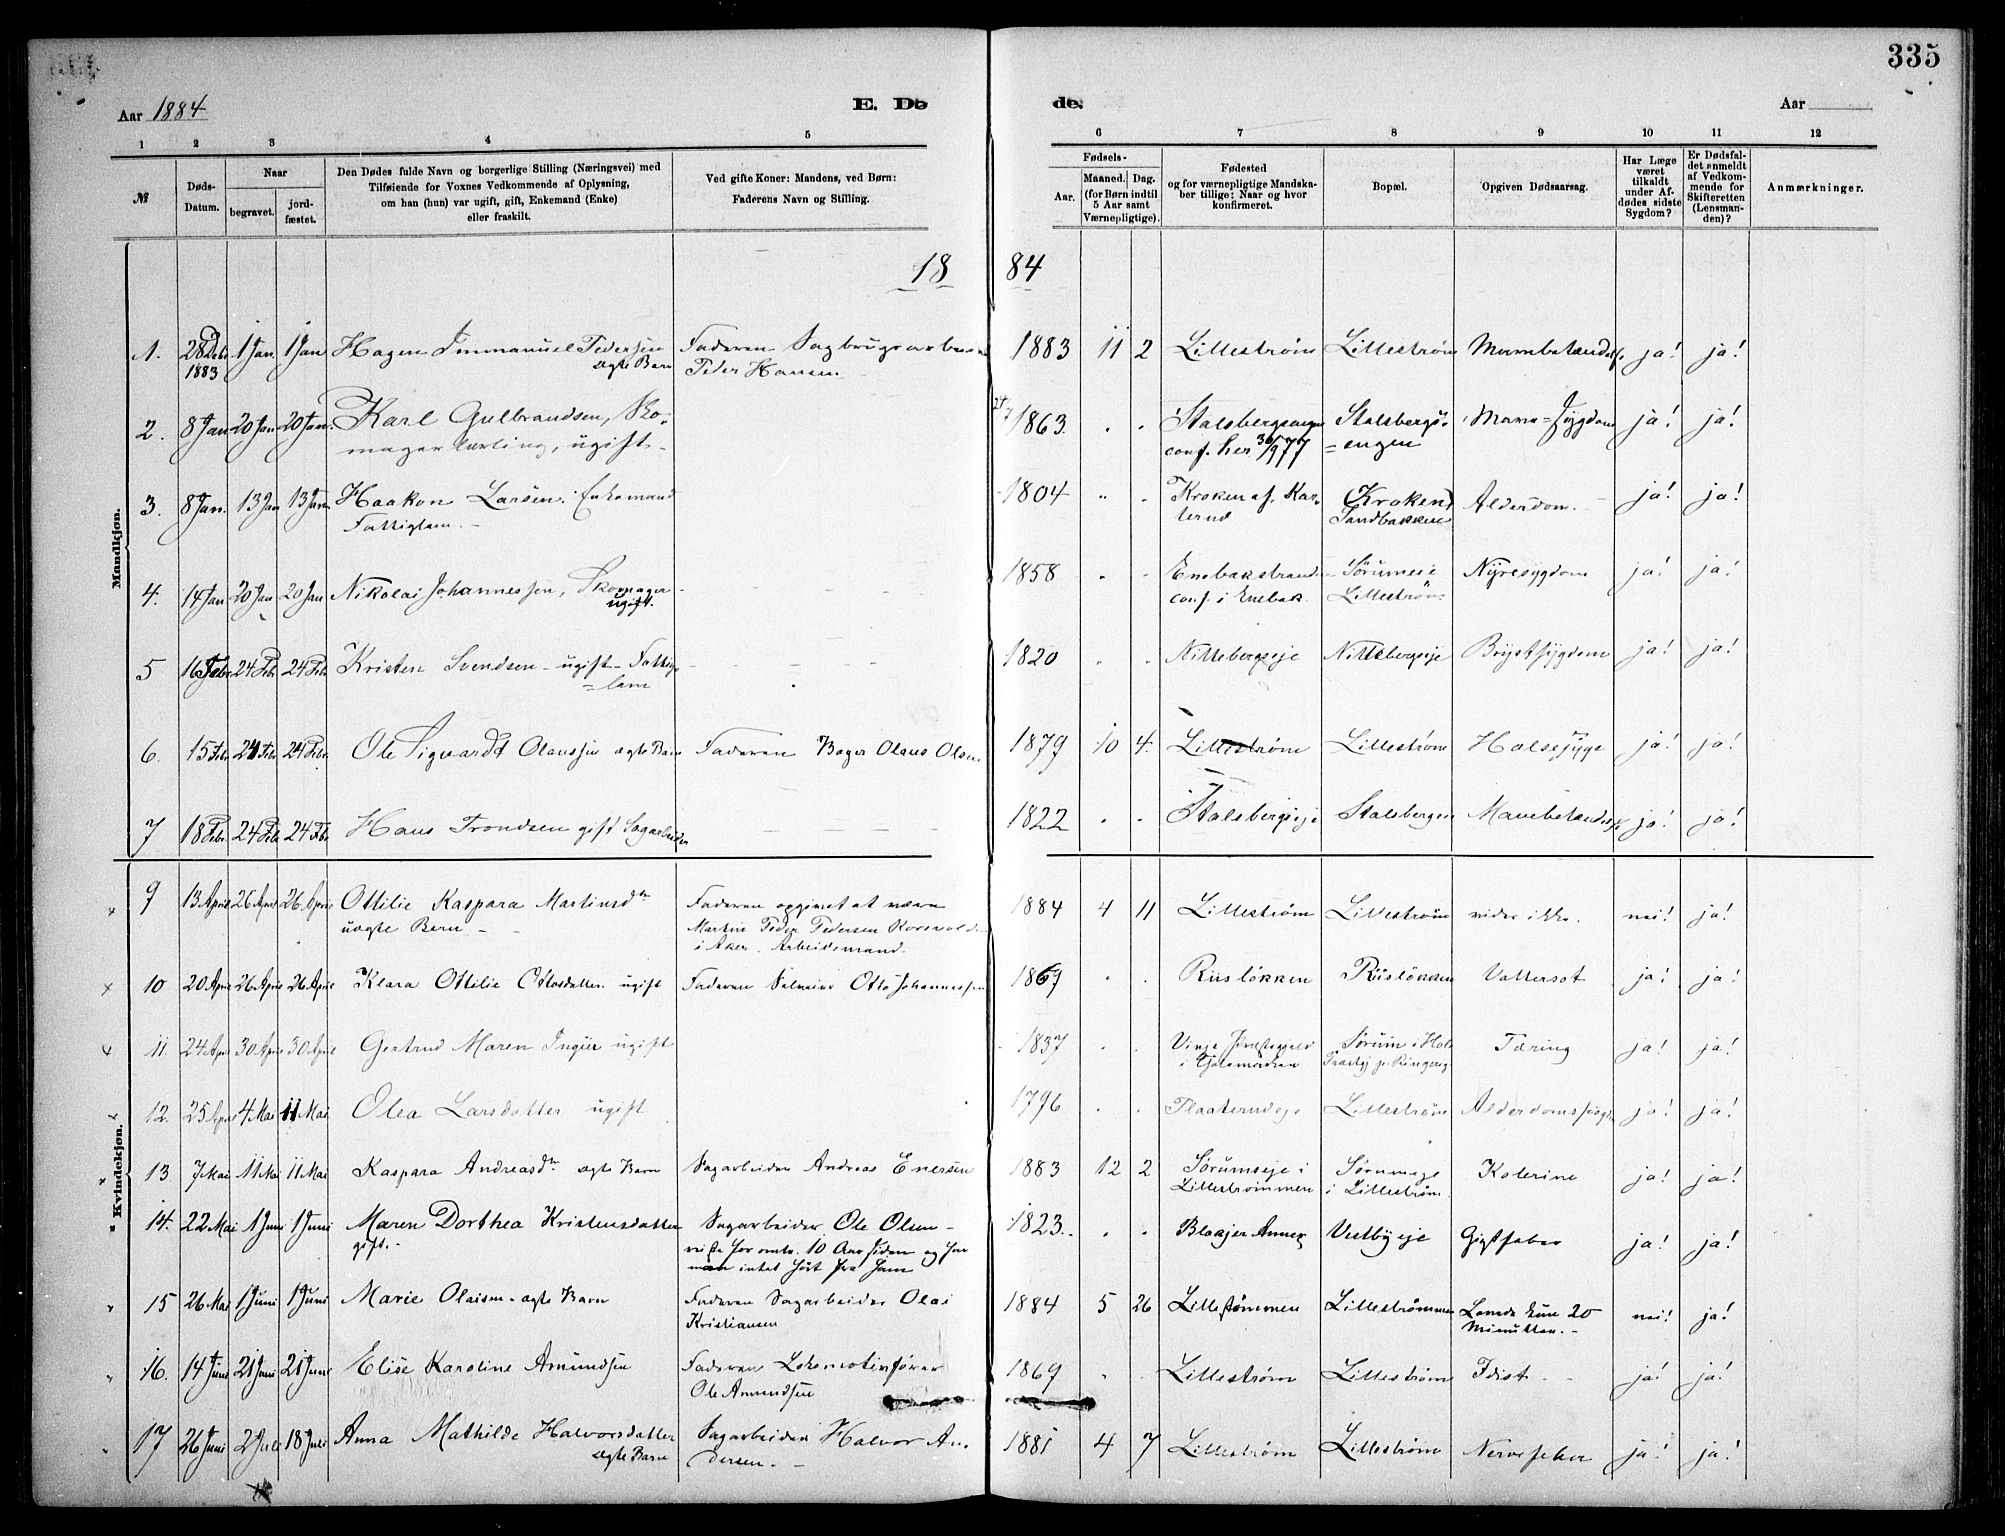 335
Aar 1884
E. Dø
de.
Aar
1 2 3 4 5 6 7 8 9 10 11 12
№
Døds-
Datum.
Naar
begravet.
jord-
fæstet.
Den Dødes fulde Navn og borgerlige Stilling (Næringsvei) med
Tilføiende for Voxnes Vedkommende af Oplysning,
om han (hun) var ugift, gift, Enkemand (Enke)
eller fraskilt.
Ved gifte Koner: Mandens, ved Børn:
Faderens Navn og Stilling.
Fødsels-
Aar.
Maaned. Dag.
(for Børn indtil
5 Aar samt
Værnepligtige).
Fødested
og for værnepligtige Mandska-
ber tillige: Naar og hvor
konfirmeret.
Bopæl.
Opgiven Dødsaarsag.
Har Læge
været
tilkaldt
under Af-
dødes sidste
Sygdom?
Er Dødsfal-
det anmeldt
af Vedkom-
mende for
Skifteretten
(Lensman-
den)?
Anmærkninger.
18 84
Mandkjøn.
1. 1 Jan. 1 Jan Hagen Immanuel Pedersen Faderen 1883 11 2 Lillestrøm Lillestrøm ja! ja!
1883 ægte Barn Peder Hansen
2. 8 Jan 20 Jan 20 Jan. Karl Gulbrandsen, Sko- 1863. Stalsbergs- ja! ja!
magerlærling, ugift - conf. her engen
3. 8 Jan. 13 Jan 13 Jan. Haakon Larsen. Enkemand 1804 Kroken af Kar- (Kroken) Alderdom. ja! ja!
Fattiglem. terud Sandbakken
4. 14 Jan 20 Jan 20 Jan Nikolai Johannessen, Skomager 1858 Enebakstrand Sørumeie Nyresygdom ja! ja!
ugift. conf. i Enebak Lillestrøm
5 16 Febr 24 Febr 24 Febr Kristen Svendsen - ugift - Fattig- 1820 Nittebergseje Nittebergseje Brystsygdom ja! ja!
= lem
6. 15 Febr 24 Febr 24 Febr. Ole Sigvardt Olaussen ægte Barn Faderen Bager Olaus Olsen 1879 10 4. Lillestrøm Lillestrøm Halsesyge ja! ja!
7 18 Febr. 24 Febr 24 Febr Hans Trondsen gift Sagarbeider 1822 Stalsbergeje ja! ja!
Kvindekjøn.
9 13 April 26 April 26 April Ottilie Kaspara Martinsdtr Faderen opgivet at være 1884 4 11 Lillestrøm Lillestrøm vides ikke. nei! ja!
uægte Barn Martin Peder Pedersen
i Aker. Arbeidsmand.
10 20 April 26 April 26 April Klara Ottilie Ottosdatter ugift Faderen Otto Johannessen 1869 Riisløkken Riisløkken Vattersot ja! ja!
11. 24 April 30 April 30 April Gertrud Maren Ingier ugift 1837 Vinje Præstegjeld Sørum i Hole Tæring ja! ja!
i Thelemarken Ringerige
12. 25 April 4 Mai 11 Mai Olea Larsdatter ugift 1796 Lillestrøm ja! ja!
13 7 Mai 11 Mai 11 Mai Kaspara Andreasdtr ægte Barn Sagarbeider Andreas Enersen 1883 12 2 Sørumseje i Sørumeje Kolerine ja! ja!
Lillestrømmen i Lillestrøm
14. 22 Mai 1 Juni 1 Juni Maren Dorthea Kristensdatter Sagarbeider Ole Olsen - 1823. Blakjer Annex Vestbyeje Gigtfeber ja! ja!
gift. - reiste for omtr. 10 Aar siden og har
man intet hørt fra ham
15 26 Mai 1 Juni 1 Juni Marie Olaisen - ægte Barn Faderen Sagarbeider Olai 1884 5 26 Lillestrømmen Lillestrømmen Levede kun 20 nei! ja!
Kristiansen Minutter. -
16. 14 Juni 21 Juni 21 Juni Elise Karoline Amundsen Faderen Lokomotivfører 1869 Lillestrøm Lillestrøm ja! ja!
Ole Amundsen
17 26 Juni 2 Juli 18 Juli Anna Mathilde Halvorsdatter Sagarbeider Halvor An- 1881 4 7 Lillestrøm Lillestrøm Nervefeber ja! ja!
ægte Barn dersen. -